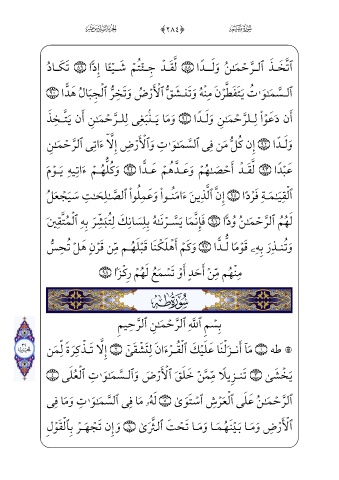 ٱتَّخَذَ ٱلرَّحْمَـٰنُ وَلَـدًا ۝٨٨ لَّقَـدْ جِـئْتُمْ شَـيْـًٔا إِدًّا ۝٨٩ تَكَـادُ
ٱلسَّمَـٰوَٰتُ يَتَفَطَّرْنَ مِنْهُ وَتَنشَـقُّ ٱلْأَرْضُ وَتَخِرُّ ٱلْجِبَالُ هَدًّا ۝٩٠
أَن دَعَوْا۟ لِلرَّحْمَـٰنِ وَلَدًا ۝٩١ وَمَا يَنۢبَغِى لِلرَّحْمَـٰنِ أَن يَتَّخِذَ
وَلَدًا ۝٩٢ إِن كُلُّ مَن فِى ٱلسَّمَـٰوَٰتِ وَٱلْأَرْضِ إِلَّآ ءَاتِى ٱلرَّحْمَـٰنِ
عَبْدًا ۝٩٣ لَّقَدْ أَحْصَىٰهُمْ وَعَدَّهُمْ عَدًّا ۝٩٤ وَكُلُّهُمْ ءَاتِيهِ يَـوْمَ
ٱلْقِيَـٰمَةِ فَرْدًا ۝٩٥ إِنَّ ٱلَّذِينَ ءَامَنُوا۟ وَعَمِلُوا۟ ٱلصَّـٰلِحَـٰتِ سَيَجْعَلُ
لَهُمُ ٱلرَّحْمَـٰنُ وُدًّا ۝٩٦ فَإِنَّمَا يَسَّرْنَـٰهُ بِلِسَانِكَ لِتُبَشِّرَ بِهِ ٱلْمُتَّقِينَ
وَتُنذِرَ بِهِۦ قَوْمًا لُّدًّا ۝٩٧ وَكَمْ أَهْلَكْنَا قَبْلَهُم مِّن قَرْنٍ هَلْ تُحِسُّ
مِنْهُم مِّنْ أَحَدٍ أَوْ تَسْمَعُ لَهُمْ رِكْزًۢا ۝٩٨
سُورَةُ طه
بِسْمِ ٱللَّهِ ٱلرَّحْمَـٰنِ ٱلرَّحِيمِ
۞ طه ۝١ مَآ أَنزَلْنَا عَلَيْكَ ٱلْقُرْءَانَ لِتَشْقَىٰٓ ۝٢ إِلَّا تَذْكِرَةً لِّمَن
يَخْشَىٰ ۝٣ تَنزِيلًا مِّمَّنْ خَلَقَ ٱلْأَرْضَ وَٱلسَّمَـٰوَٰتِ ٱلْعُلَى ۝٤
ٱلرَّحْمَـٰنُ عَلَى ٱلْعَرْشِ ٱسْتَوَىٰ ۝٥ لَهُۥ مَا فِى ٱلسَّمَـٰوَٰتِ وَمَا فِى
ٱلْأَرْضِ وَمَا بَيْنَهُمَا وَمَا تَحْتَ ٱلثَّرَىٰ ۝٦ وَإِن تَجْهَـرْ بِٱلْقَوْلِ